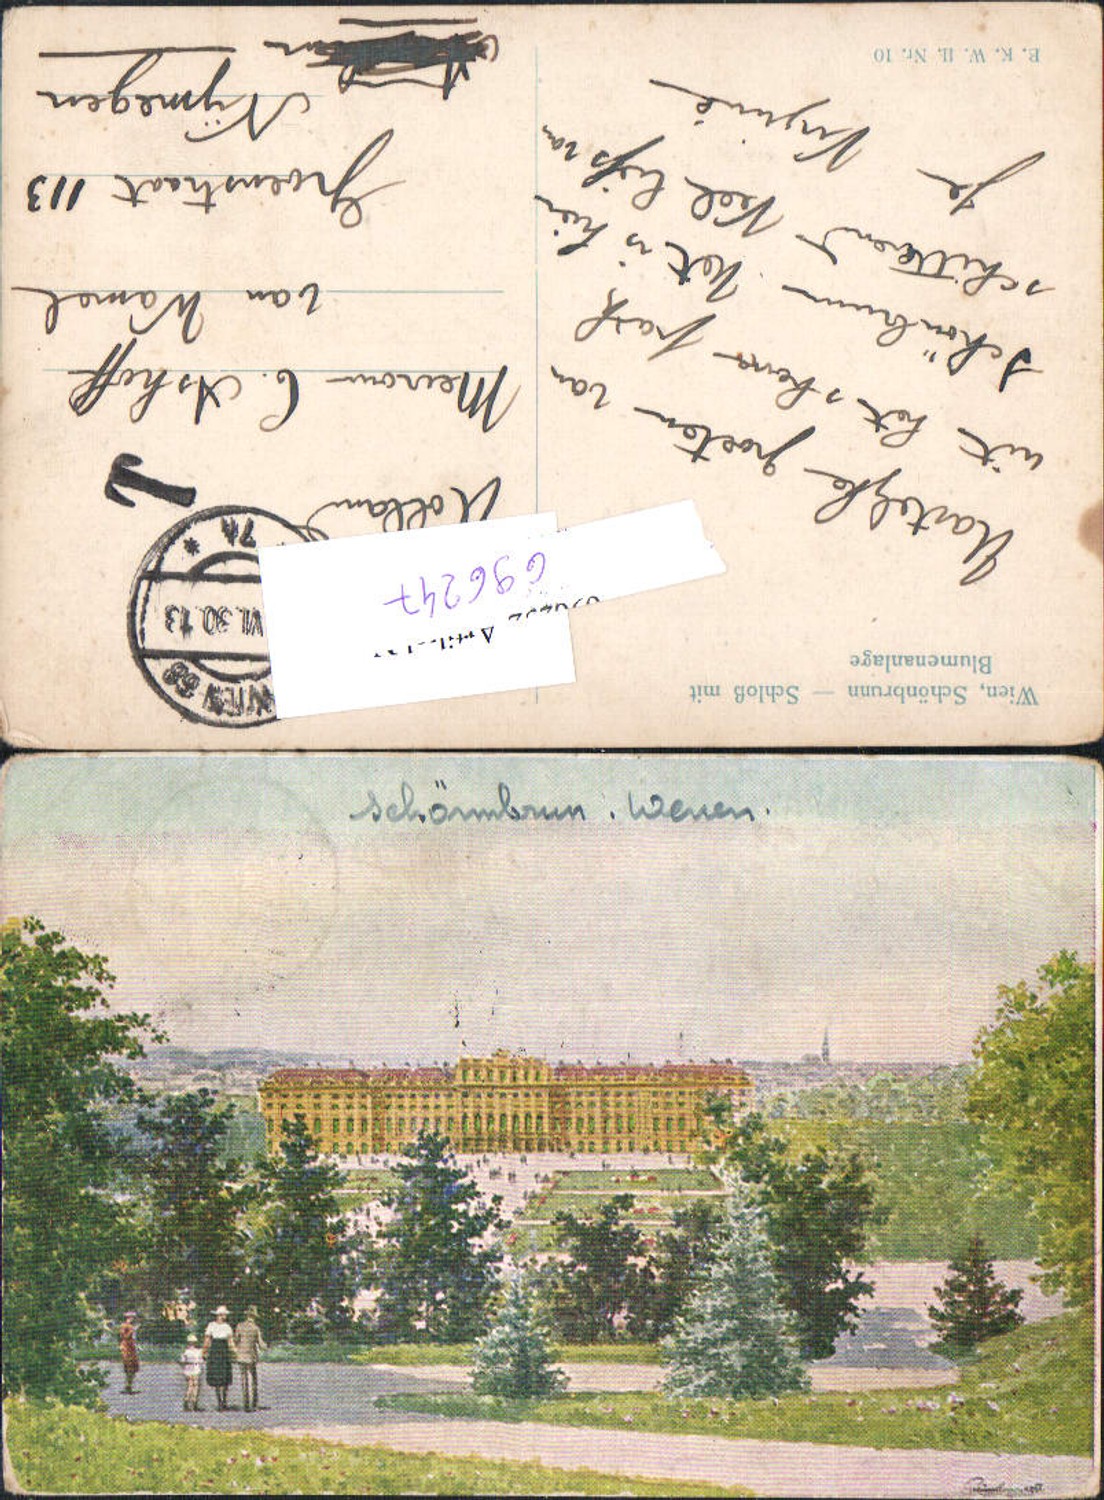 B. K. W. II. Nr. 10
Wien, Schönbrunn — Schloß mit
Blumenanlage
Hartelijke groeten van
uit het schone park
Schönbrunn. Het is hier
schitterend. Veel liefs van
Je
Virginie
WIEN 68
VI.30.13
* 7A
T
Holland
Mevrouw C. Ashoff
van Wamel
Groenstraat 113
Nijmegen
696247
Schönnbrun. Wenen.